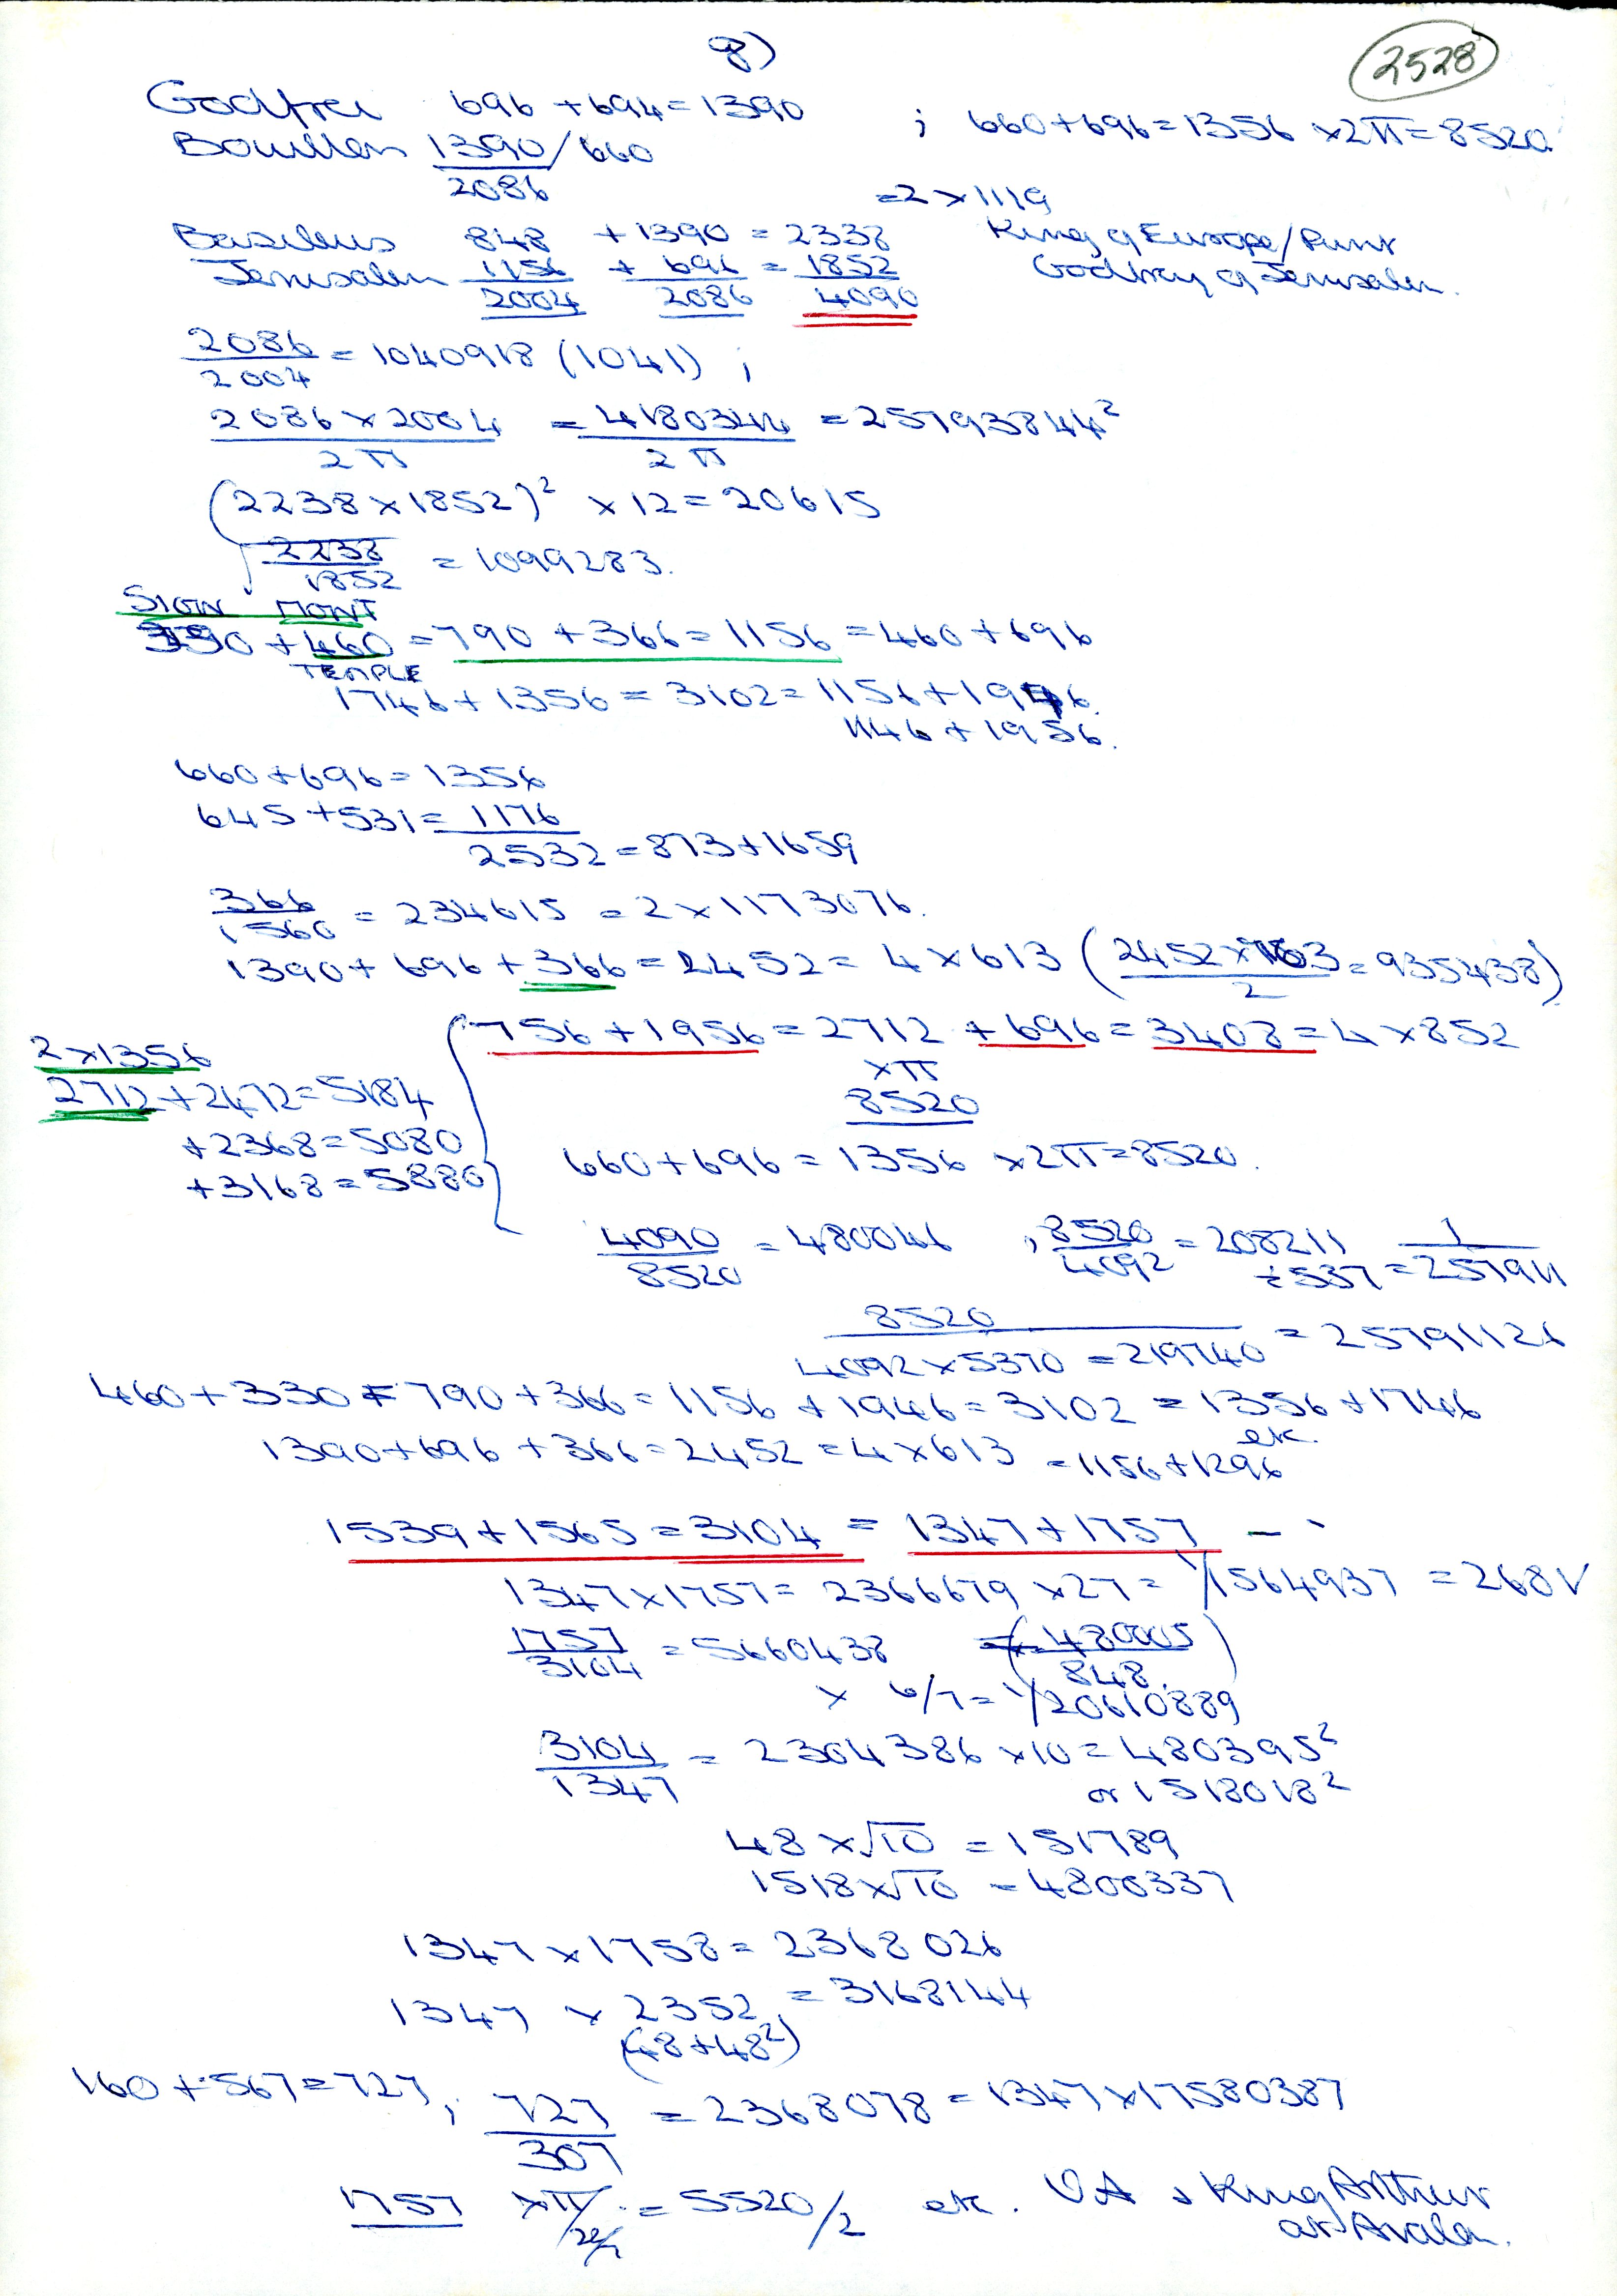 8)
2528
Godfrei 696 + 694 = 1390 ; 660 + 696 = 1356 × 2π = 8520.
Bouillon 1390/660
2086
= 2 × 1119
Basileus 848 + 1390 = 2338 King of Europe/
Jerusalem 1156 + 696 = 1852 Godfrey of Jerusalem.
2004 2086 4090
2086/2004 = 1040918 (1041) ;
2086 × 2004 / 2π = 4180344 / 2π = 25793844²
(2238 × 1852)² × 12 = 20615
2238/1852 = 1099283.
SION MONT
330 + 460 = 790 + 366 = 1156 = 460 + 696
TEMPLE
1746 + 1356 = 3102 = 1156 + 1946.
1146 + 1956.
660 + 696 = 1356
645 + 531 = 1176
2532 = 873 + 1659
366/1560 = 234615 = 2 × 1173076.
1390 + 696 + 366 = 2452 = 4 × 613 (2452 × 763 / 2 = 935438)
756 + 1956 = 2712 + 696 = 3408 = 4 × 852
2 × 1356
× π
2712 + 2472 = 5184
8520
+ 2368 = 5080
660 + 696 = 1356 × 2π = 8520.
+ 3168 = 5880
4090/8520 = 480046 , 8520/4092 = 208211 ÷ 537 = 1/257911
8520 / 4092 × 5370 = 219740 = 25791126
460 + 330 = 790 + 366 = 1156 + 1946 = 3102 = 1356 + 1746
etc.
1390 + 696 + 366 = 2452 = 4 × 613 = 1156 + 1296
1539 + 1565 = 3104 = 1347 + 1757 - -
1347 × 1757 = 2366679 × 27 = 1/1564937 = 268V
1757/3104 = 5660438 (480005/848)
× 6/7 = 1/20610889
3104/1347 = 2304386 × 10 = 480395²
or 1518018²
48 × √10 = 151789
1518 × √10 = 4800337
1347 × 1758 = 2368026
1347 × 2352 = 3168144
(48 + 48²)
160 + 567 = 727 ; 727/307 = 2368078 = 1347 × 17580387
1757 × π/22/7 = 5520/2 etc. VA King Arthur
at Avalon.